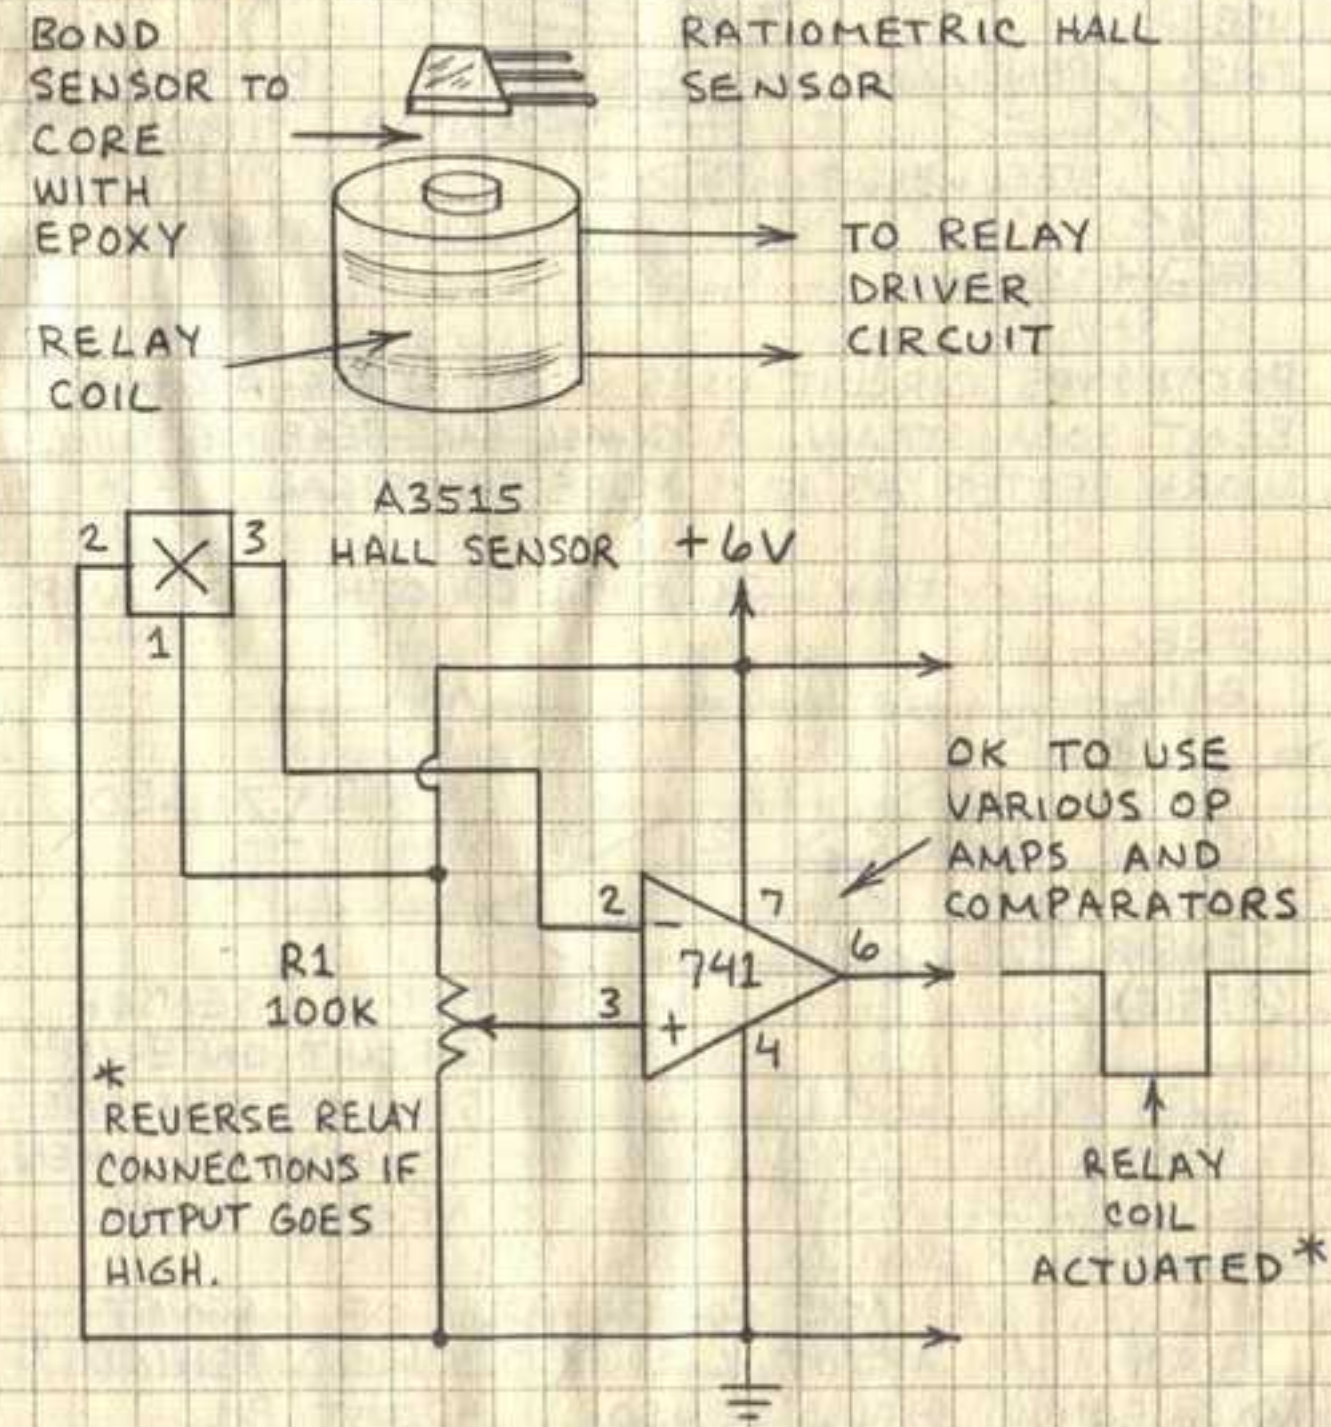 BOND
SENSOR TO
CORE
WITH
EPOXY
RATIOMETRIC HALL
SENSOR
TO RELAY
DRIVER
CIRCUIT
RELAY
COIL
A3515
HALL SENSOR
+6V
2
3
1
OK TO USE
VARIOUS OP
AMPS AND
COMPARATORS
2
7
-
741
6
R1
100K
3
+
4
*
REVERSE RELAY
CONNECTIONS IF
OUTPUT GOES
HIGH.
RELAY
COIL
ACTUATED*